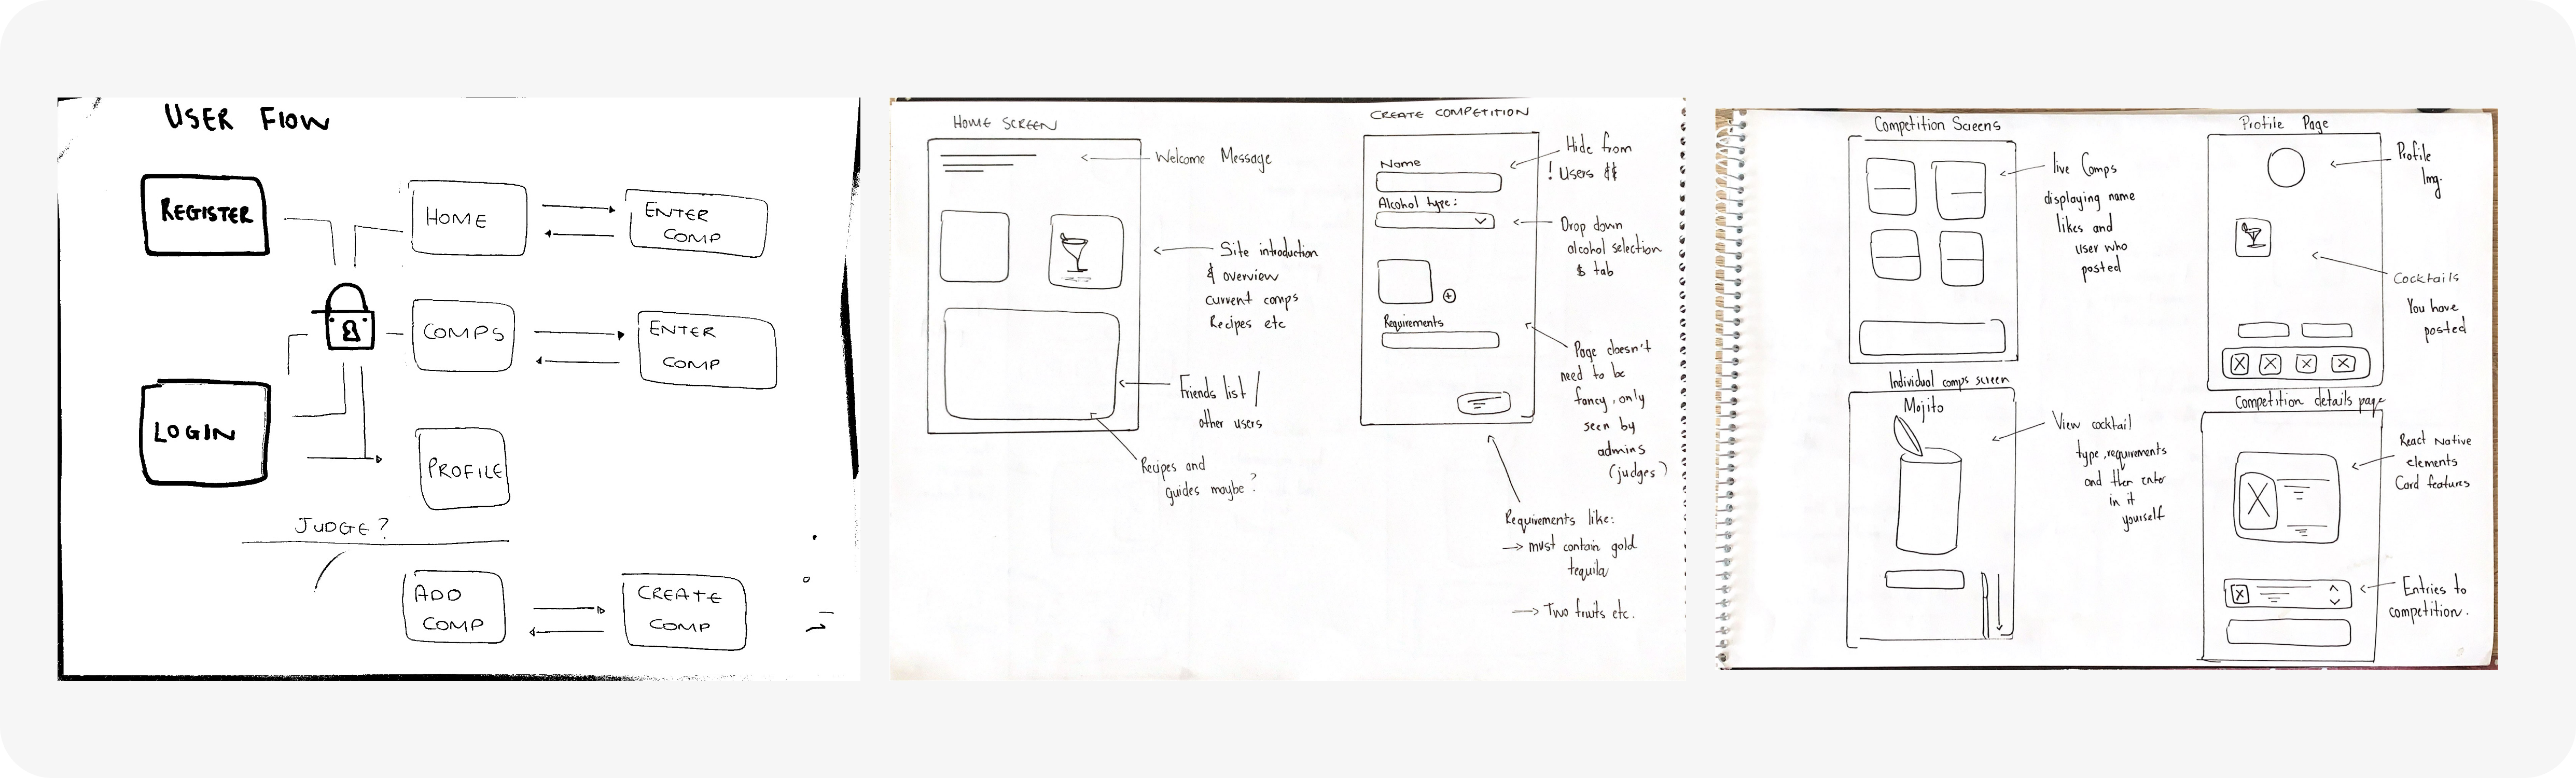 USER FLOW
REGISTER
HOME
ENTER
COMP
COMPS
ENTER
COMP
LOGIN
PROFILE
JUDGE?
ADD
COMP
CREATE
COMP
HOME SCREEN
Welcome Message
Site introduction
& overview
current comps
Recipes etc
Friends list /
other users
Recipes and
guides maybe?
CREATE COMPETITION
Name
Alcohol type:
Requirements
Hide from
! Users
Drop down
alcohol selection
tab
Page doesn't
need to be
fancy, only
seen by
admins
(judges)
Requirements like:
→ must contain gold
tequila
→ Two fruits etc.
Competition Screens
live Comps
displaying name
likes and
user who
posted
Individual comps screen
Mojito
View cocktail
type, requirements
and then enter
in it
yourself
Profile Page
Profile
Img.
Cocktails
You have
posted
Competition details page
React Native
elements
Card features
Entries to
competition.